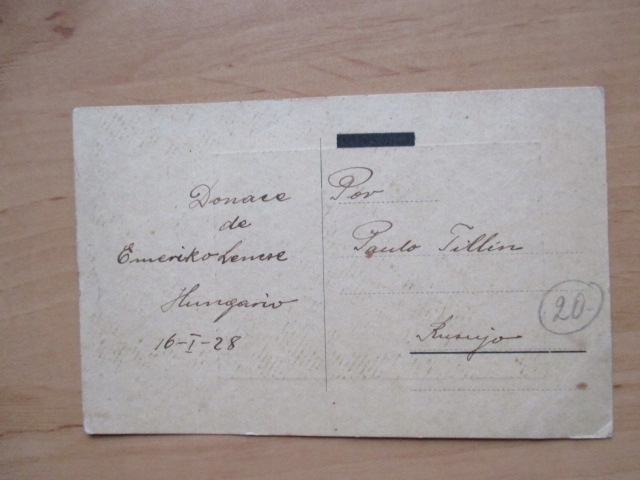 Donace
de
Emeriko Lencse
Hungario
16-I-28
Por
Paulo Tillin
Rusujo
20.-